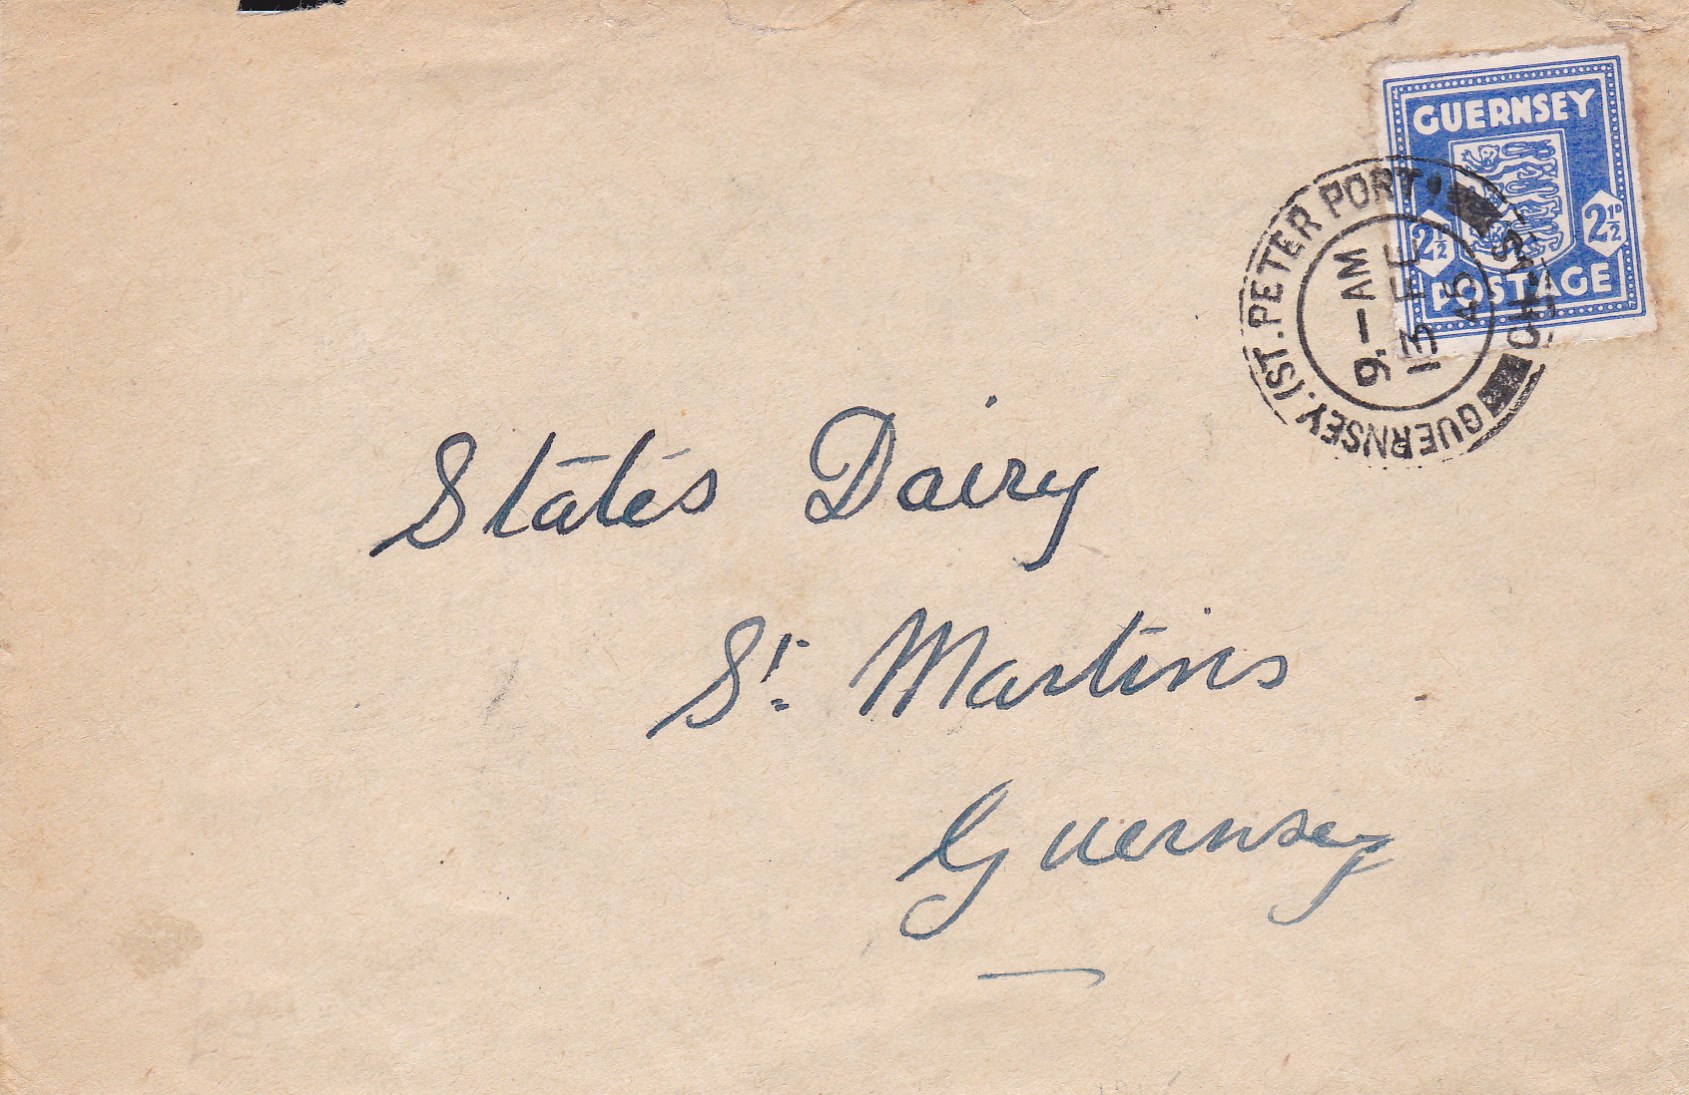 GUERNSEY
2½D 2½D
POSTAGE
GUERNSEY. (ST. PETER PORT) CH. IS.
9.-AM
13 FE
45
States Dairy
St. Martins
Guernsey